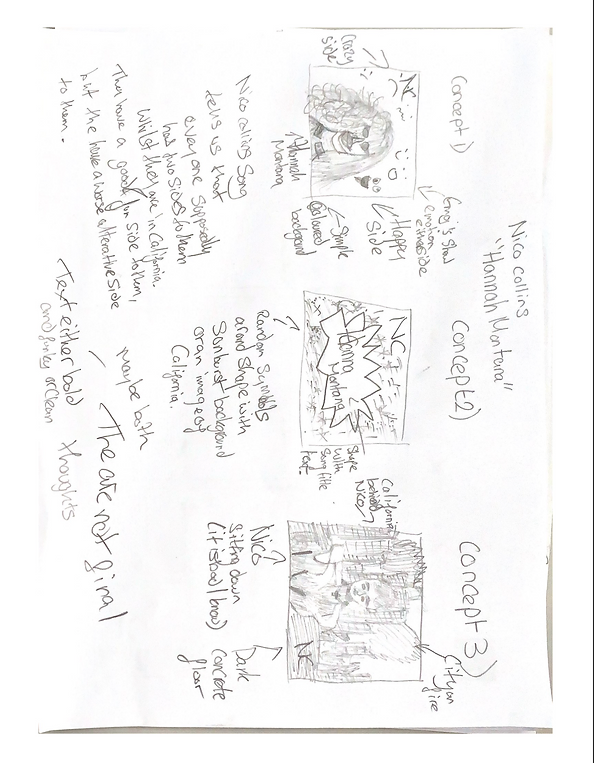 Nico Collins
"Hannah Montana"
Concept 1)
Crazy
side
NC
Hannah
Montana
Emoji's show
emotion
eitherside
Happy
Side
Simple
Coloured
background
Nico Collins Song
tells us that
everyone supposedly
has two sides to them
Whilst they are in California.
They have a good/fun side to them,
but the have a worse alterative side
to them.
Concept 2)
NC
Hanna
Montana
Shape
with
Song title
text.
Random Symbols
around shape with
Sunburst background
or an image of
California.
maybe both
Text either bold
and funky or clean
Concept 3)
California
behind
Nico
City on
fire
NC
Nico
Sitting down
(it is bad I know)
Dark
Concrete
floor
The are not final
thoughts